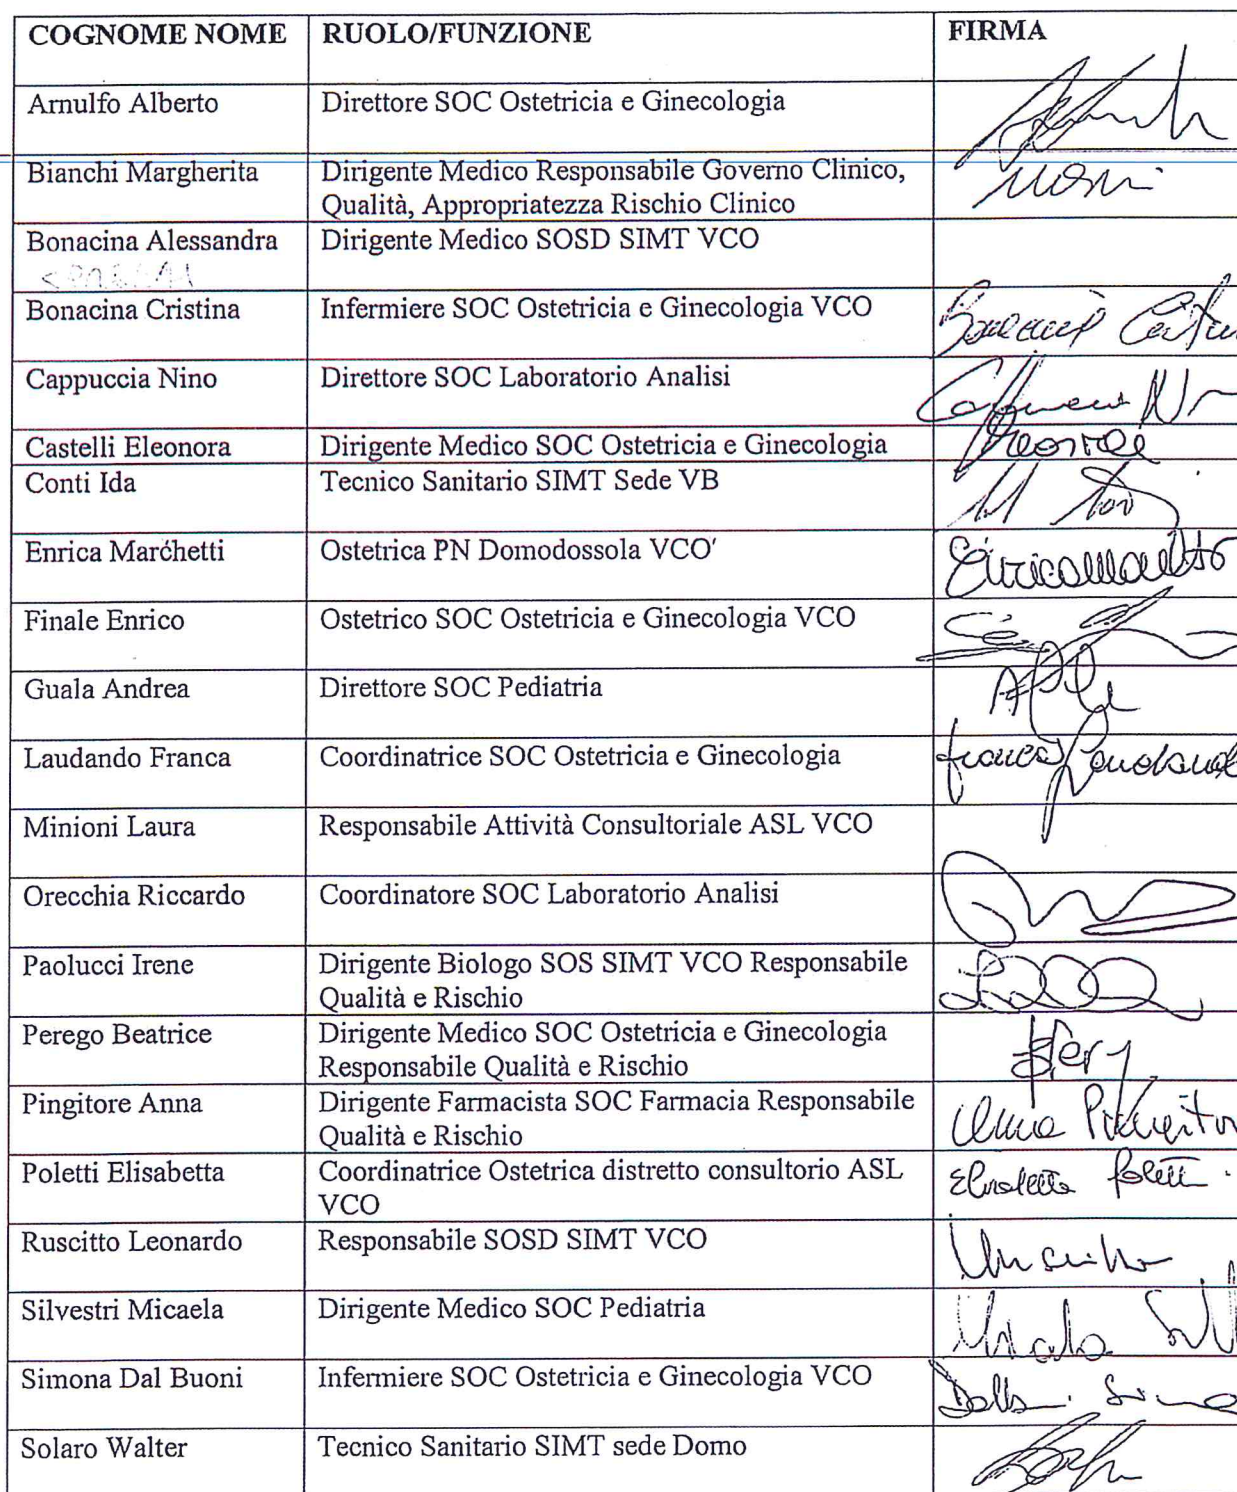 COGNOME NOME RUOLO/FUNZIONE FIRMA
Arnulfo Alberto Direttore SOC Ostetricia e Ginecologia
Bianchi Margherita Dirigente Medico Responsabile Governo Clinico,
Qualità, Appropriatezza Rischio Clinico
Bonacina Alessandra Dirigente Medico SOSD SIMT VCO
Bonacina Cristina Infermiere SOC Ostetricia e Ginecologia VCO
Cappuccia Nino Direttore SOC Laboratorio Analisi
Castelli Eleonora Dirigente Medico SOC Ostetricia e Ginecologia
Conti Ida Tecnico Sanitario SIMT Sede VB
Enrica Marchetti Ostetrica PN Domodossola VCO
Finale Enrico Ostetrico SOC Ostetricia e Ginecologia VCO
Guala Andrea Direttore SOC Pediatria
Laudando Franca Coordinatrice SOC Ostetricia e Ginecologia
Minioni Laura Responsabile Attività Consultoriale ASL VCO
Orecchia Riccardo Coordinatore SOC Laboratorio Analisi
Paolucci Irene Dirigente Biologo SOS SIMT VCO Responsabile
Qualità e Rischio
Perego Beatrice Dirigente Medico SOC Ostetricia e Ginecologia
Responsabile Qualità e Rischio
Pingitore Anna Dirigente Farmacista SOC Farmacia Responsabile
Qualità e Rischio
Poletti Elisabetta Coordinatrice Ostetrica distretto consultorio ASL Elisabetta Poletti
VCO
Ruscitto Leonardo Responsabile SOSD SIMT VCO
Silvestri Micaela Dirigente Medico SOC Pediatria
Simona Dal Buoni Infermiere SOC Ostetricia e Ginecologia VCO
Solaro Walter Tecnico Sanitario SIMT sede Domo